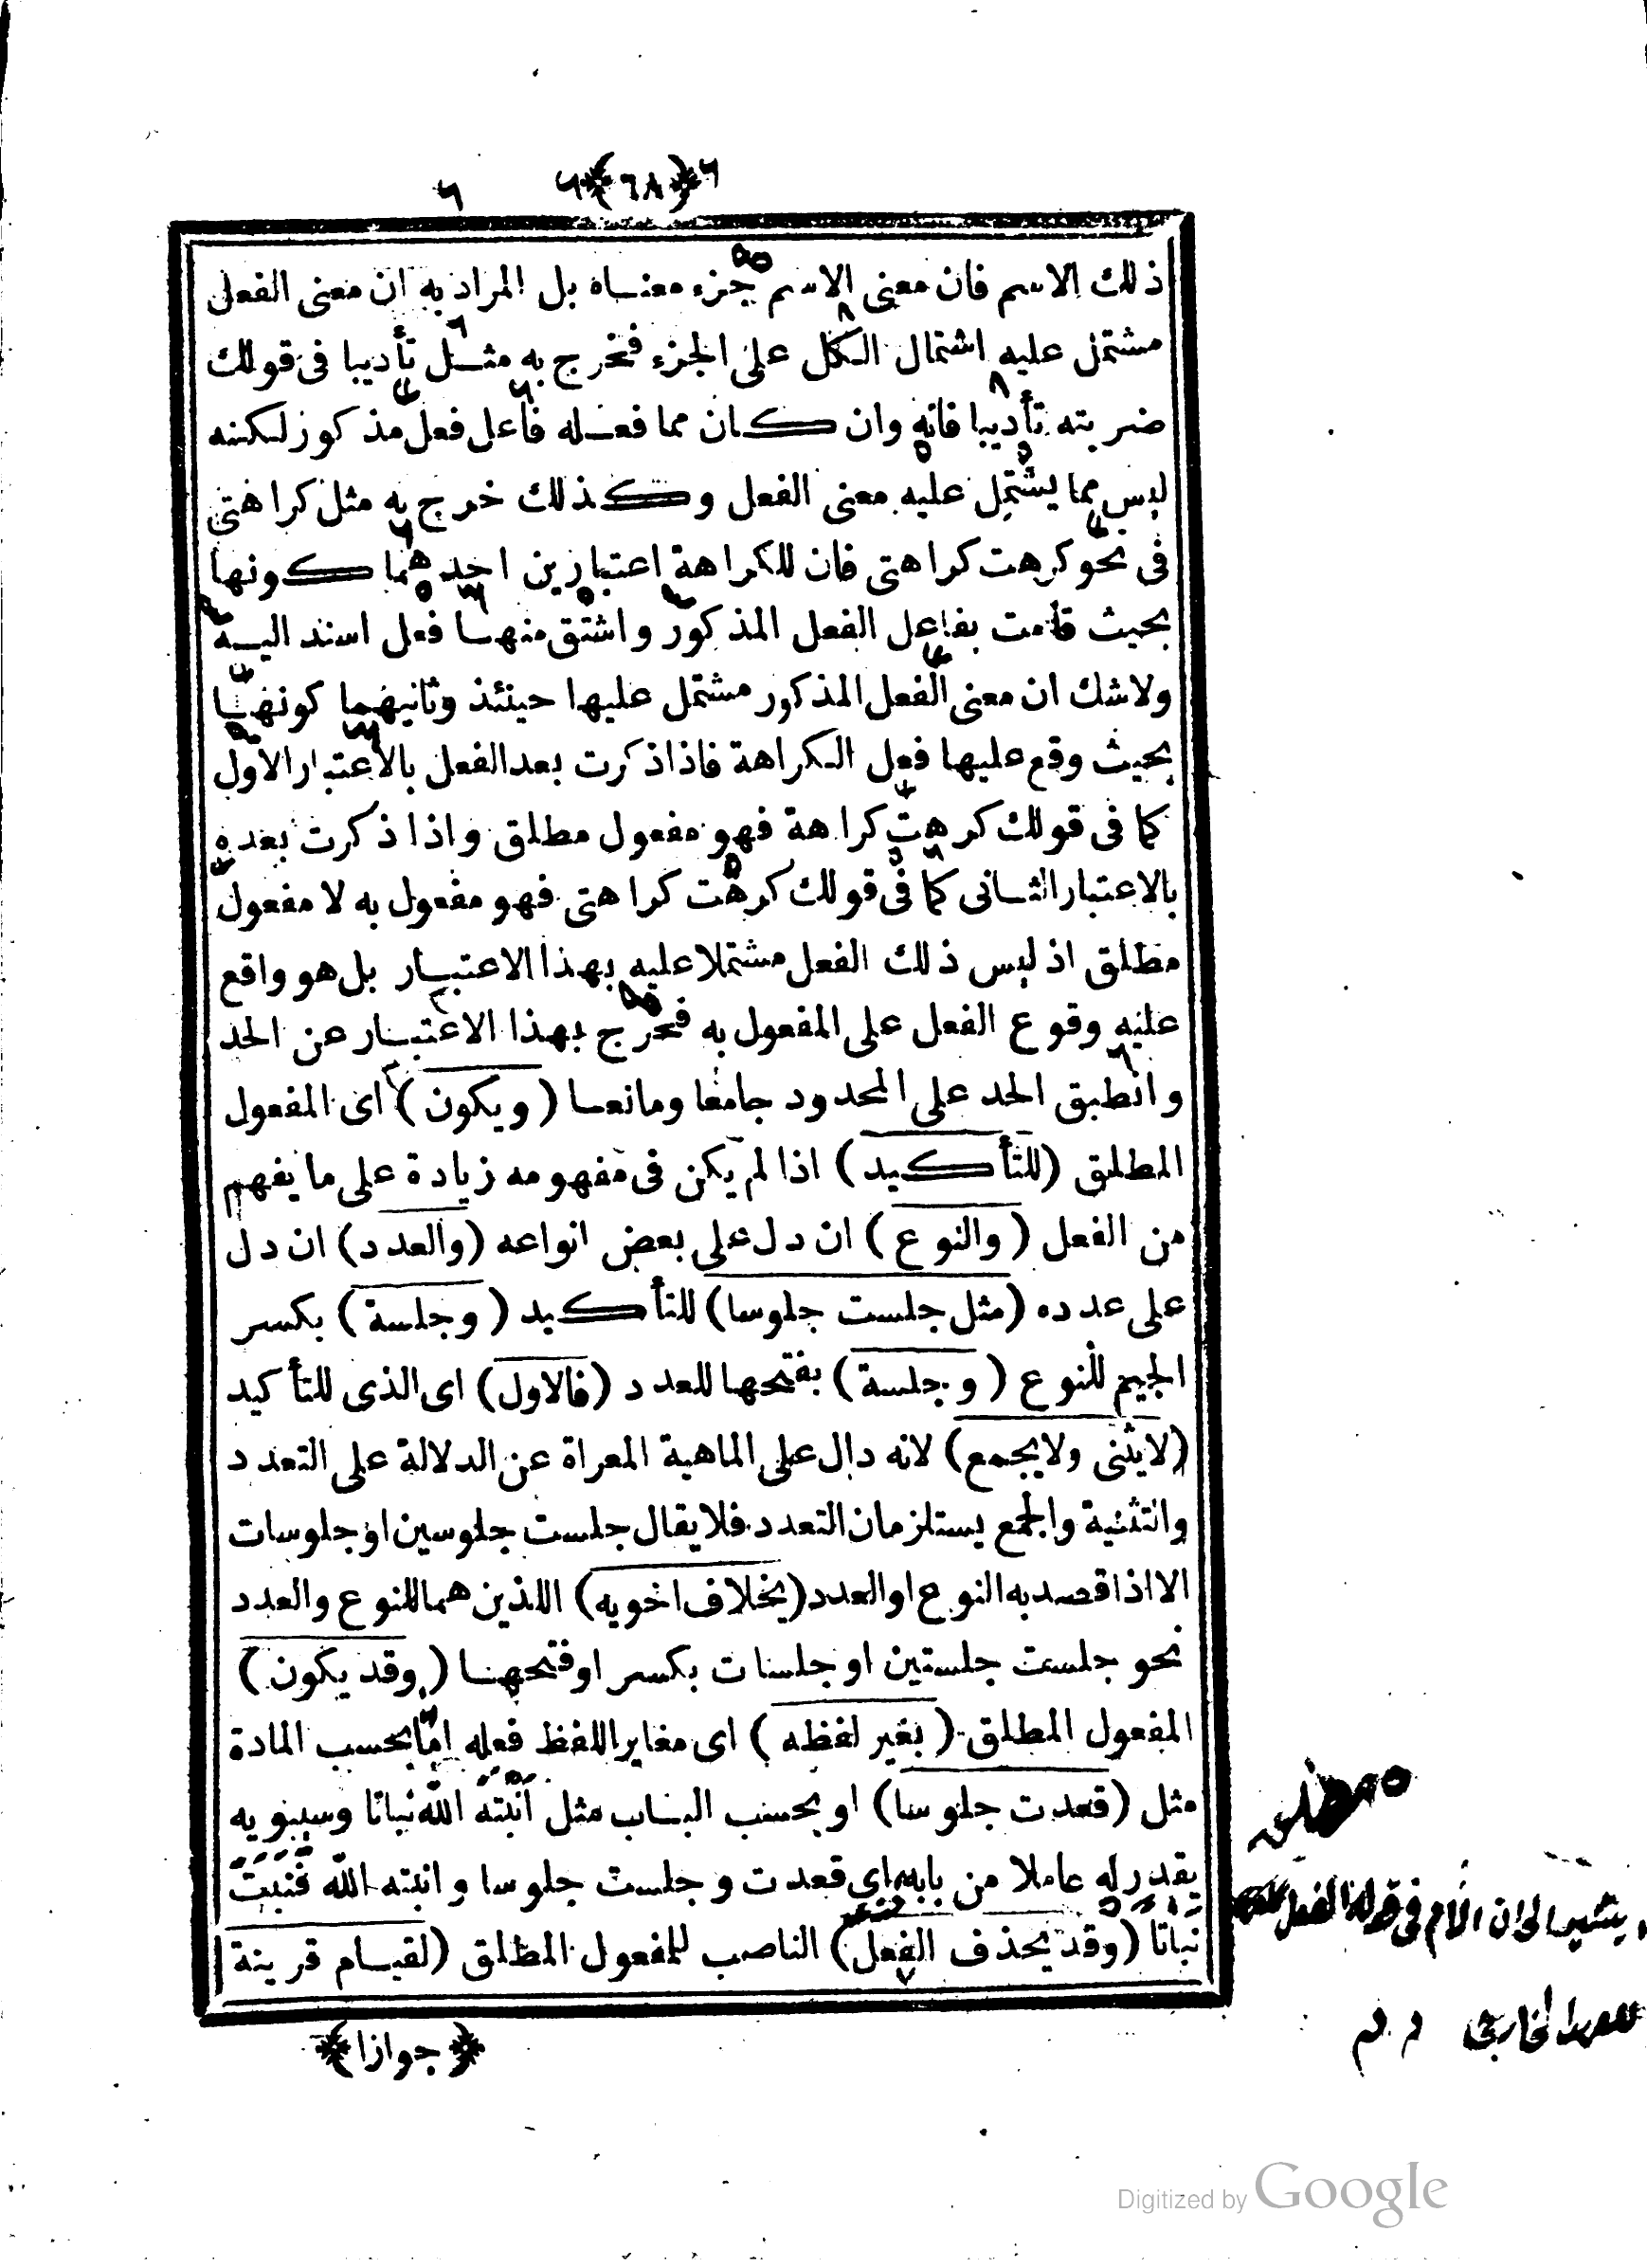 ﴿٦٨﴾
ذلك الاسم فان معنى الاسم جزء معناه بل المراد به ان معنى الفعل
مشتمل عليه اشتمال الكل على الجزء فخرج به مثل تأديبا فى قولك
ضربته تأديبا فانه وان كان مما فعله فاعل فعل مذكور لكنه
ليس مما يشتمل عليه معنى الفعل وكذلك خرج به مثل كراهتى
فى نحو كرهت كراهتى فان للكراهة اعتبارين احدهما كونها
بحيث قامت بفاعل الفعل المذكور واشتق منها فعل اسند اليه
ولاشك ان معنى الفعل المذكور مشتمل عليها حينئذ وثانيهما كونها
بحيث وقع عليها فعل الكراهة فاذا ذكرت بعد الفعل بالاعتبار الاول
كما فى قولك كرهت كراهة فهو مفعول مطلق واذا ذكرت بعده
بالاعتبار الثانى كما فى قولك كرهت كراهتى فهو مفعول به لا مفعول
مطلق اذ ليس ذلك الفعل مشتملا عليه بهذا الاعتبار بل هو واقع
عليه وقوع الفعل على المفعول به فخرج بهذا الاعتبار عن الحد
وانطبق الحد على المحدود جامعا ومانعا (ويكون) اى المفعول
المطلق (للتأكيد) اذا لم يكن فى مفهومه زيادة على ما يفهم
من الفعل (والنوع) ان دل على بعض انواعه (والعدد) ان دل
على عدده (مثل جلست جلوسا) للتأكيد (وجلسة) بكسر
الجيم للنوع (وجلسة) بفتحها للعدد (فالاول) اى الذى للتأكيد
(لايثنى ولايجمع) لانه دال على الماهية المعراة عن الدلالة على التعدد
والتثنية والجمع يستلزمان التعدد فلا يقال جلست جلوسين او جلوسات
الا اذا قصد به النوع او العدد (بخلاف اخويه) اللذين هما للنوع والعدد
نحو جلست جلستين او جلسات بكسر او فتحها (وقد يكون)
المفعول المطلق (بغير لفظه) اى مغاير اللفظ فعله اما بحسب المادة
مثل (قعدت جلوسا) او بحسب الباب مثل انبته الله نباتا وسيبويه
يقدر له عاملا من بابه اى قعدت وجلست جلوسا وانبته الله فنبت
نباتا (وقد يحذف الفعل) الناصب للمفعول المطلق (لقيام قرينة
﴿جوازا﴾
يشير الى ان اللام فى قوله الفعل
للعهد الخارجى
Digitized by Google